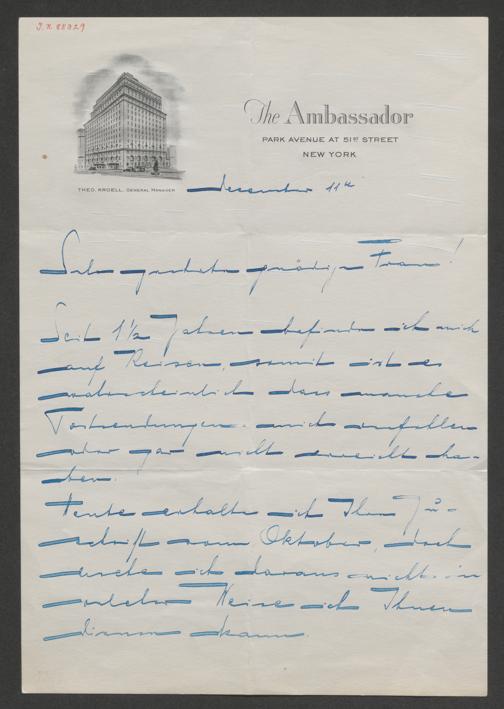 I.N. 88329
The Ambassador
PARK AVENUE AT 51ST STREET
NEW YORK
THEO. KROELL, GENERAL MANAGER
december 11th
Sehr geehrte gnädige Frau!
Seit 1½ Jahren befinde ich mich
auf Reisen, somit ist es
wahrscheinlich dass manche
Postsendungen mich
oder gar nicht erreicht ha-
ben.
Heute erhalte ich Ihre Zu-
schrift vom Oktober, doch
ersehe ich daraus nicht in
welcher Weise ich Ihnen
dienen kann.